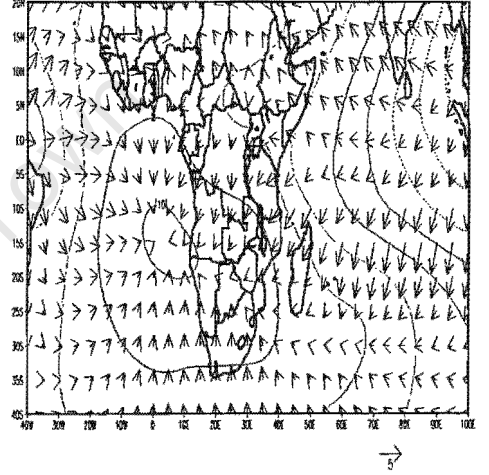 20N
15N
10N
5N
EQ
5S
10S
15S
20S
25S
30S
35S
40S
40W 30W 20W 10W 0 10E 20E 30E 40E 50E 60E 70E 80E 90E 100E
10
5